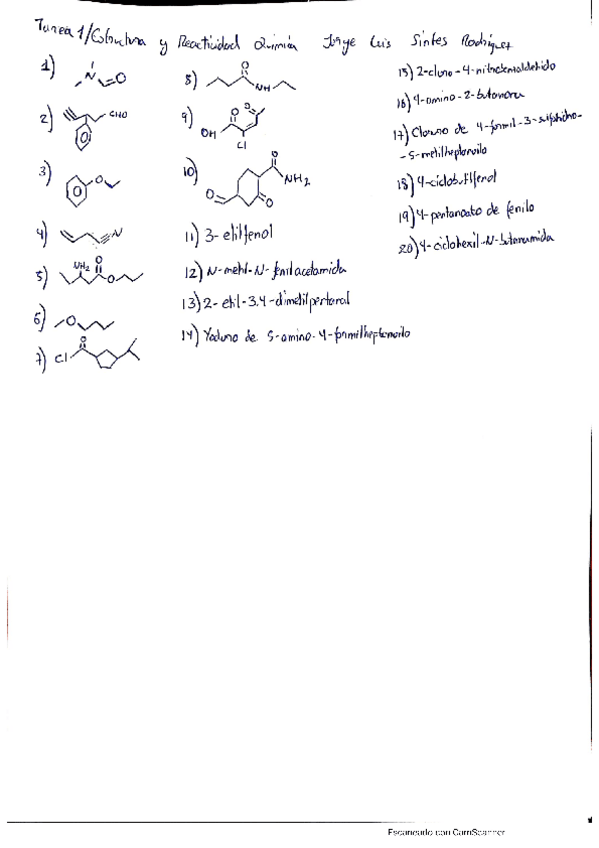 Tarea 1/Estructura y Reactividad Química Jorge Luis Sintes Rodríguez
1)
2) CHO
3) O
4) N
5) NH2 O O
6) O
7) Cl O
8) O NH
9) O O OH Cl
10) O NH2 O O
11) 3-etilfenol
12) N-metil-N-fenilacetamida
13) 2-etil-3,4-dimetilpentanal
14) Yoduro de 5-amino-4-formilheptanoilo
15) 2-cloro-4-nitrobenzaldehido
16) 4-amino-2-butanona
17) Cloruro de 4-formil-3-
-5-metilheptanoilo
18) 4-ciclobutilfenol
19) 4-pentanoato de fenilo
20) 4-ciclohexil-N-butanamida
Escaneado con CamScanner